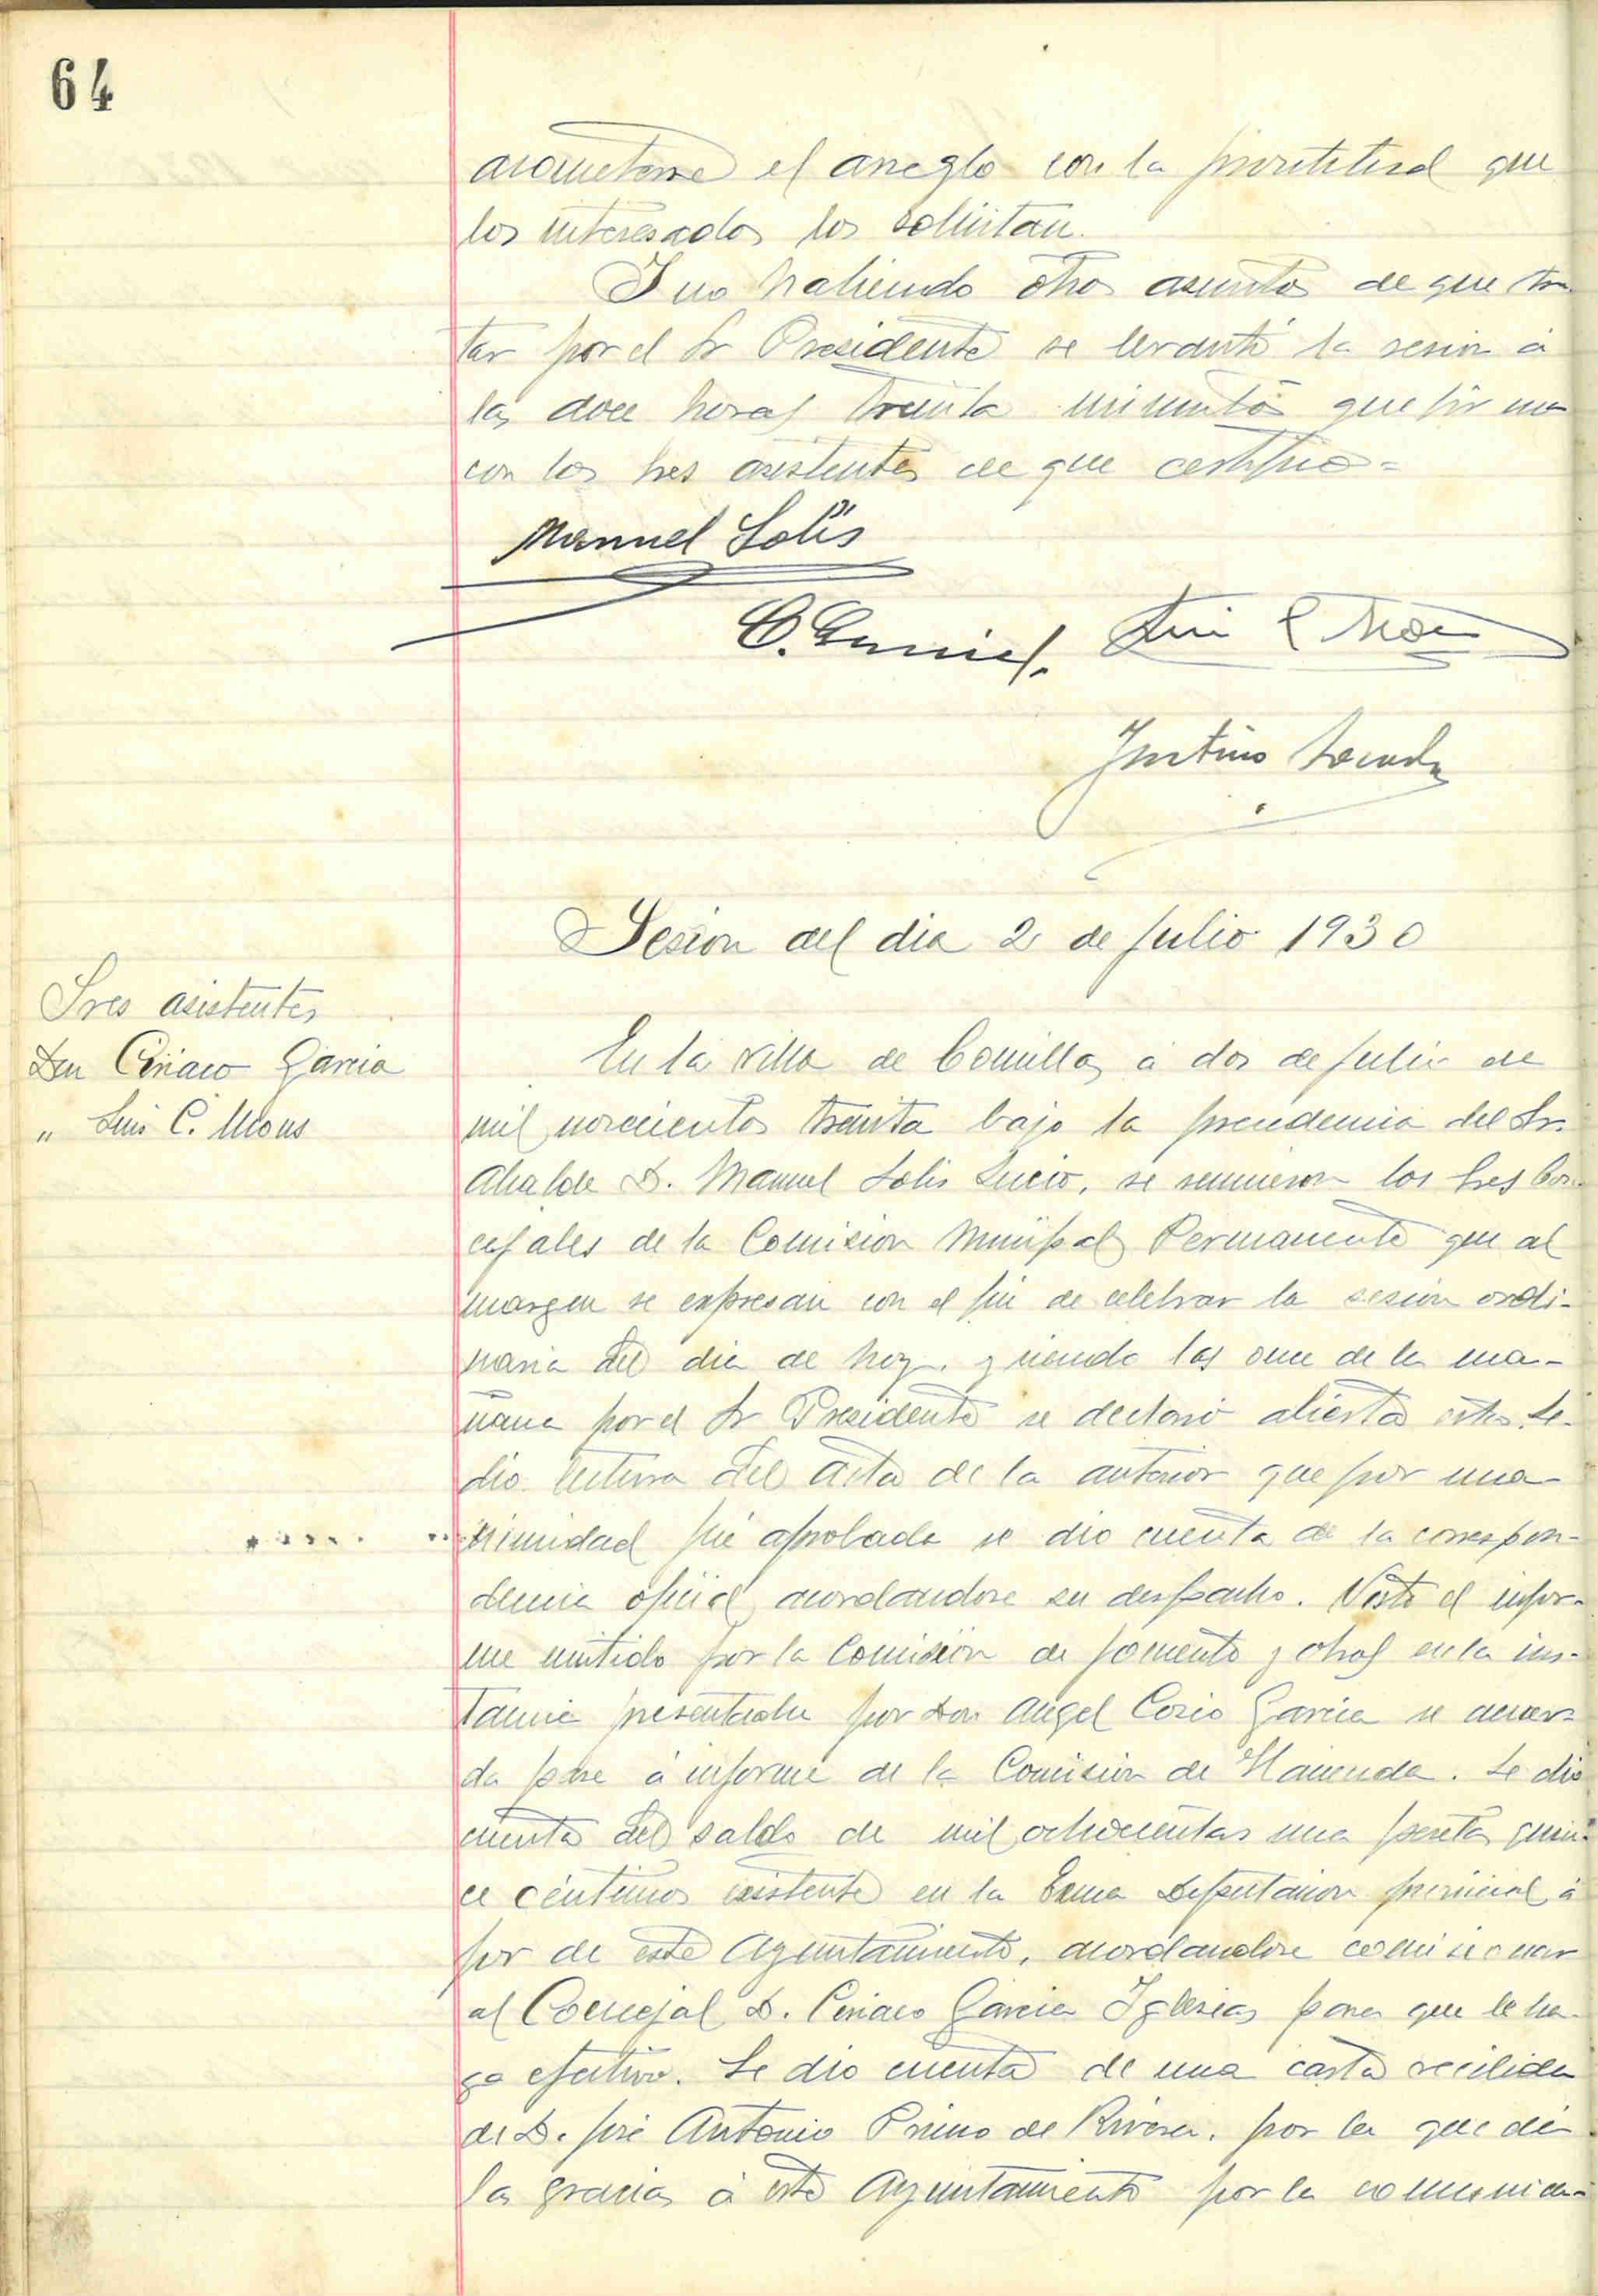 64
el arreglo con la prontitud que
los interesados los solicitan.
Y no habiendo otros asuntos de que tra
tar por el Sr Presidente se levantó la sesion á
las doce horas treinta minutos que firma
con los Sres asistentes de que certifico=
Manuel Solís
Sesion del dia 2 de Julio 1930
Sres asistentes
Don Ciriaco Garcia
" Luis C. Mons
En la villa de Comillas á dos de Julio de
mil novecientos treinta bajo la presidencia del Sr.
Alcalde D. Manuel Solis Lucio, se reunieron los Sres Con
cejales de la Comision Municipal Permanente que al
margen se expresan con el fin de celebrar la sesion ordi-
naria del dia de hoy. y siendo las once de la ma-
ñana por el Sr Presidente se declaró abierta esta. Se
dio lectura del acta de la anterior que por una-
nimidad fué aprobada se dio cuenta de la correspon-
dencia oficial acordandose su despacho. Visto el infor-
me emitido por la Comisión de fomento y obras en la ins-
tancia presentada por Don Angel Cosio Garcia se acuer-
da pase á informe de la Comision de Hacienda. Se dio
cuenta del saldo de mil ochocientas una pesetas quin-
ce céntimos existente en la Exma Diputacion provincial á
fvor de este Ayuntamiento, acordandose comisionar
al Concejal D. Ciriaco Garcia Iglesias para que le ha-
ga efectivo. Se dio cuenta de una carta recibida
de D. José Antonio Primo de Rivera, por la que dá
las gracias á este Ayuntamiento por la comunica-